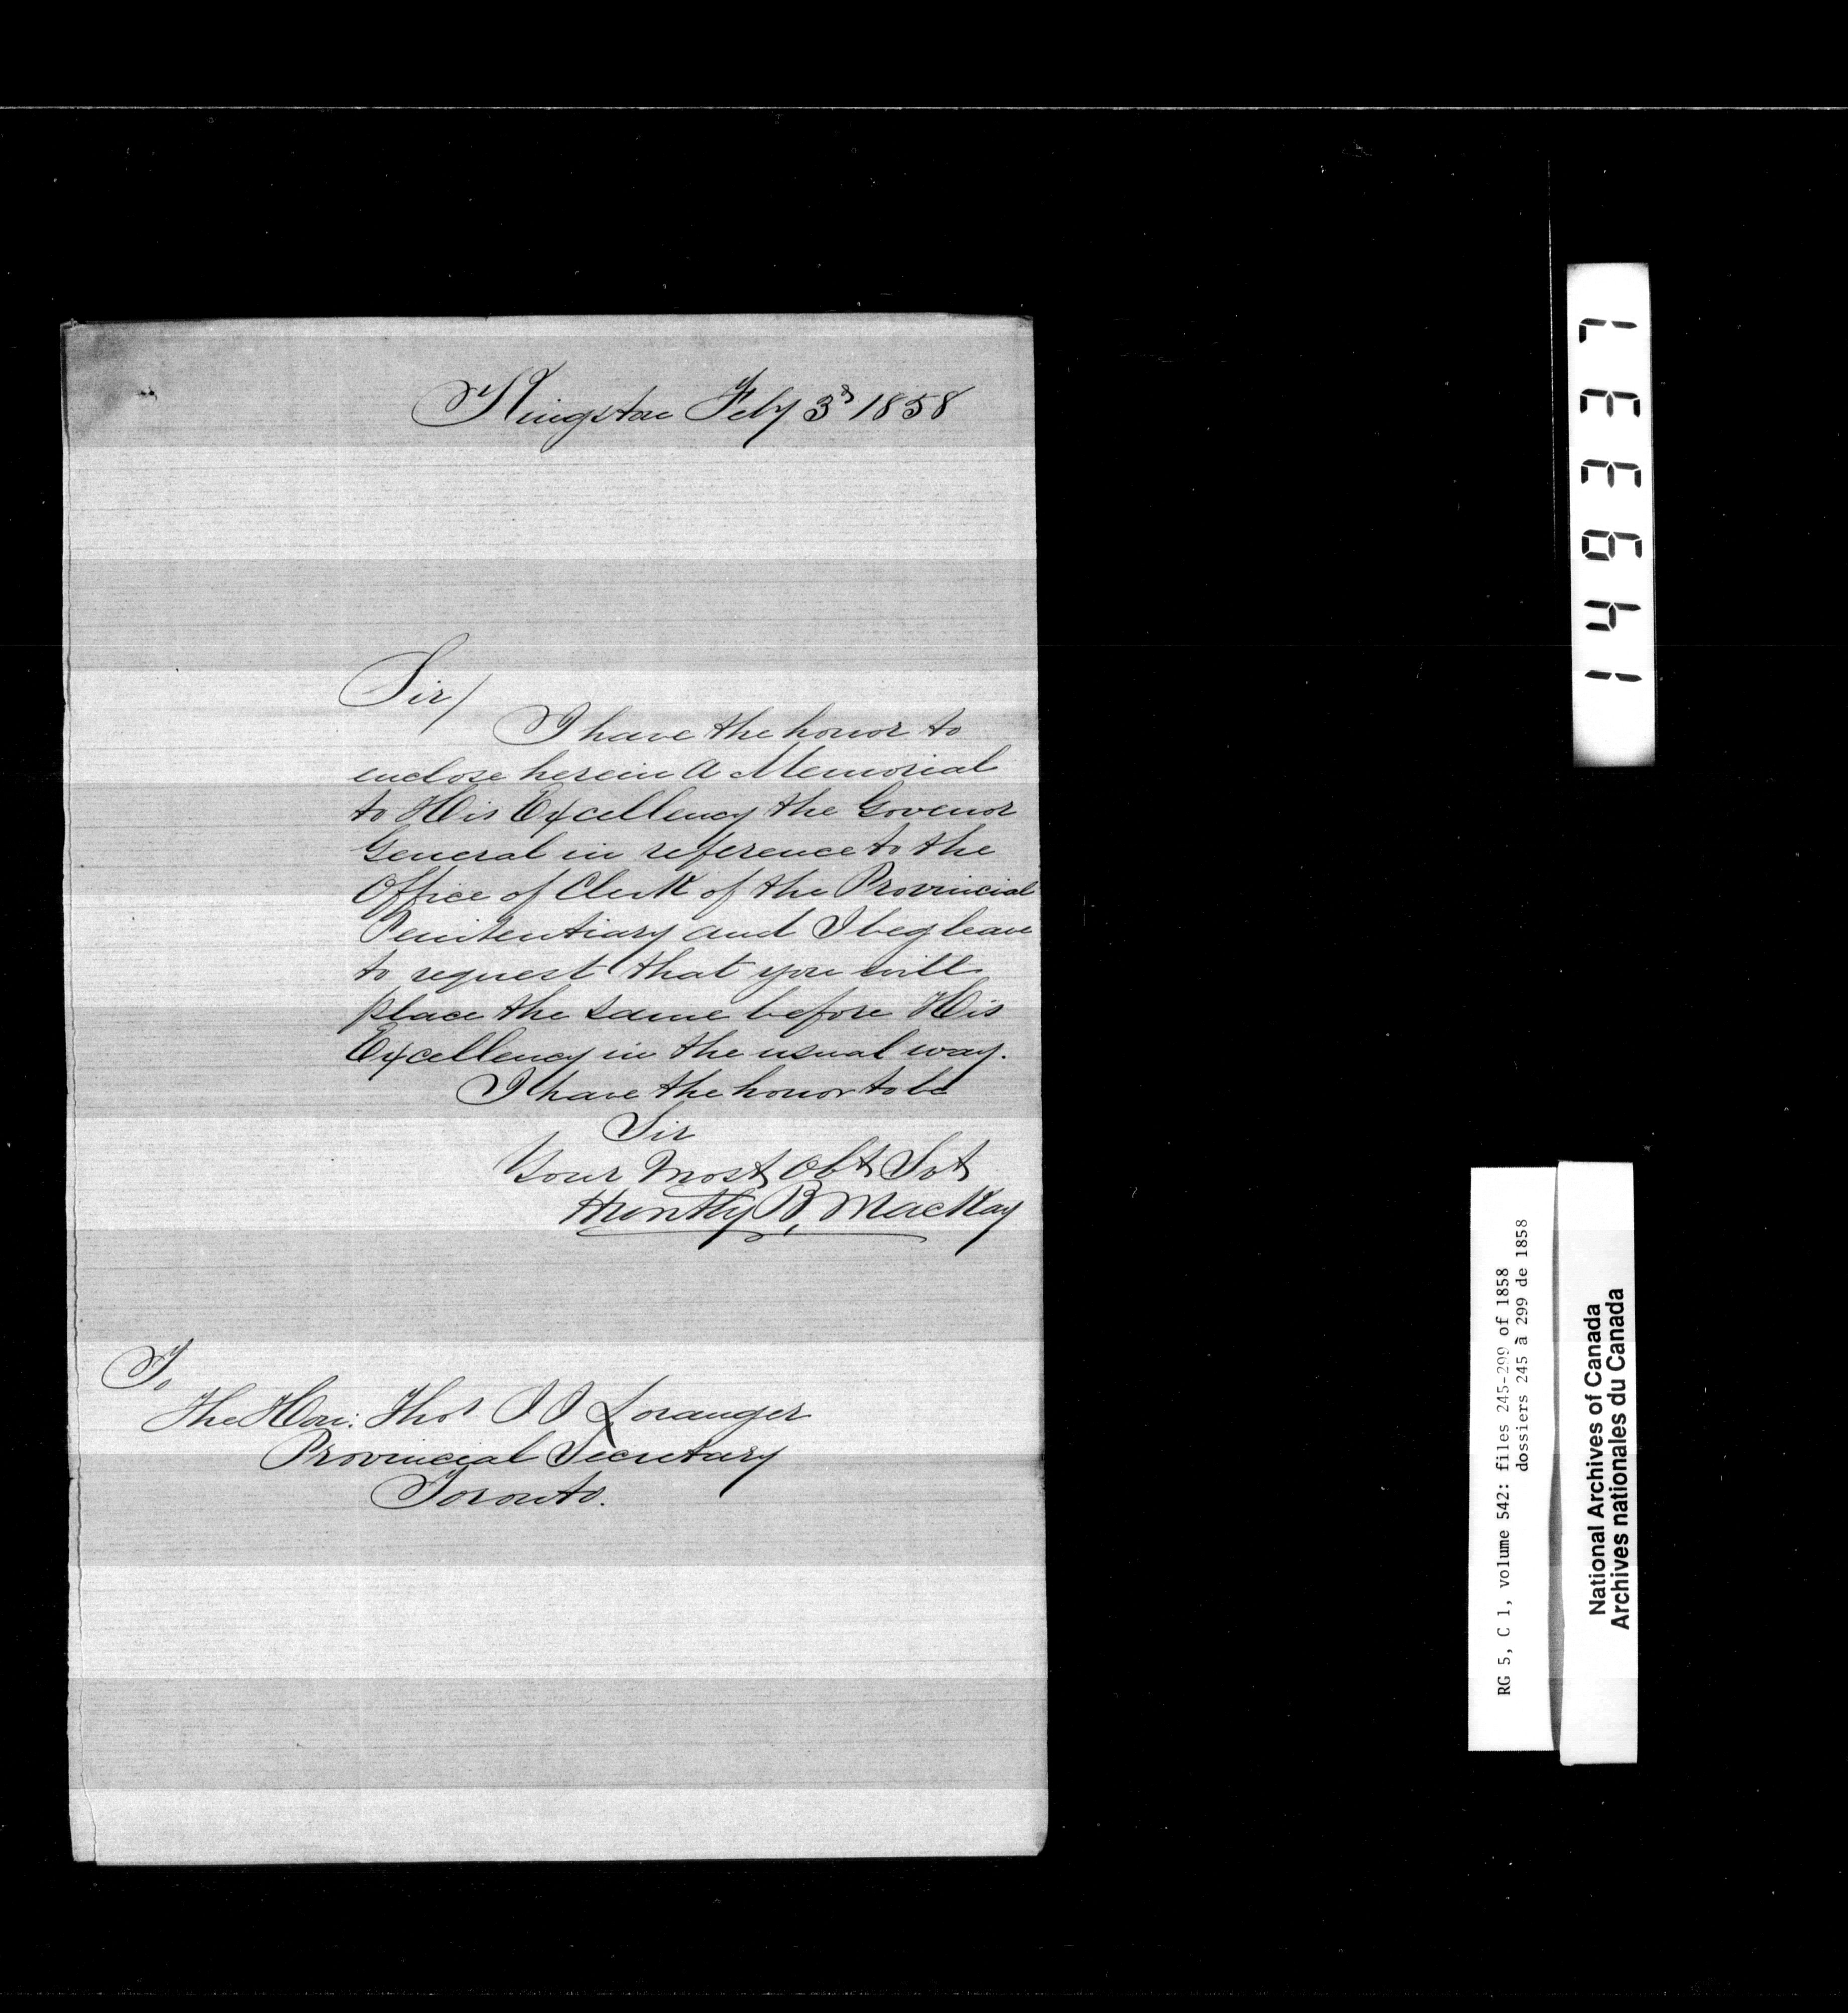 Kingston Feby 3d 1858
Sir/
I have the honor to
enclose herein a Memorial
to His Excellency the Govenor
General in reference to the
Office of Clerk of the Provincial
Penitentiary and I beg leave
to request that you will
place the same before His
Excellency in the usual way.
I have the honor to be
Sir
Your Most Obt Svt
Huntly B, MacKay
To
The Hon: Thos J J Loranger
Provincial Secretary
Toronto.
149337
RG 5, C 1, volume 542: files 245-299 of 1858
dossiers 245 à 299 de 1858
National Archives of Canada
Archives nationales du Canada